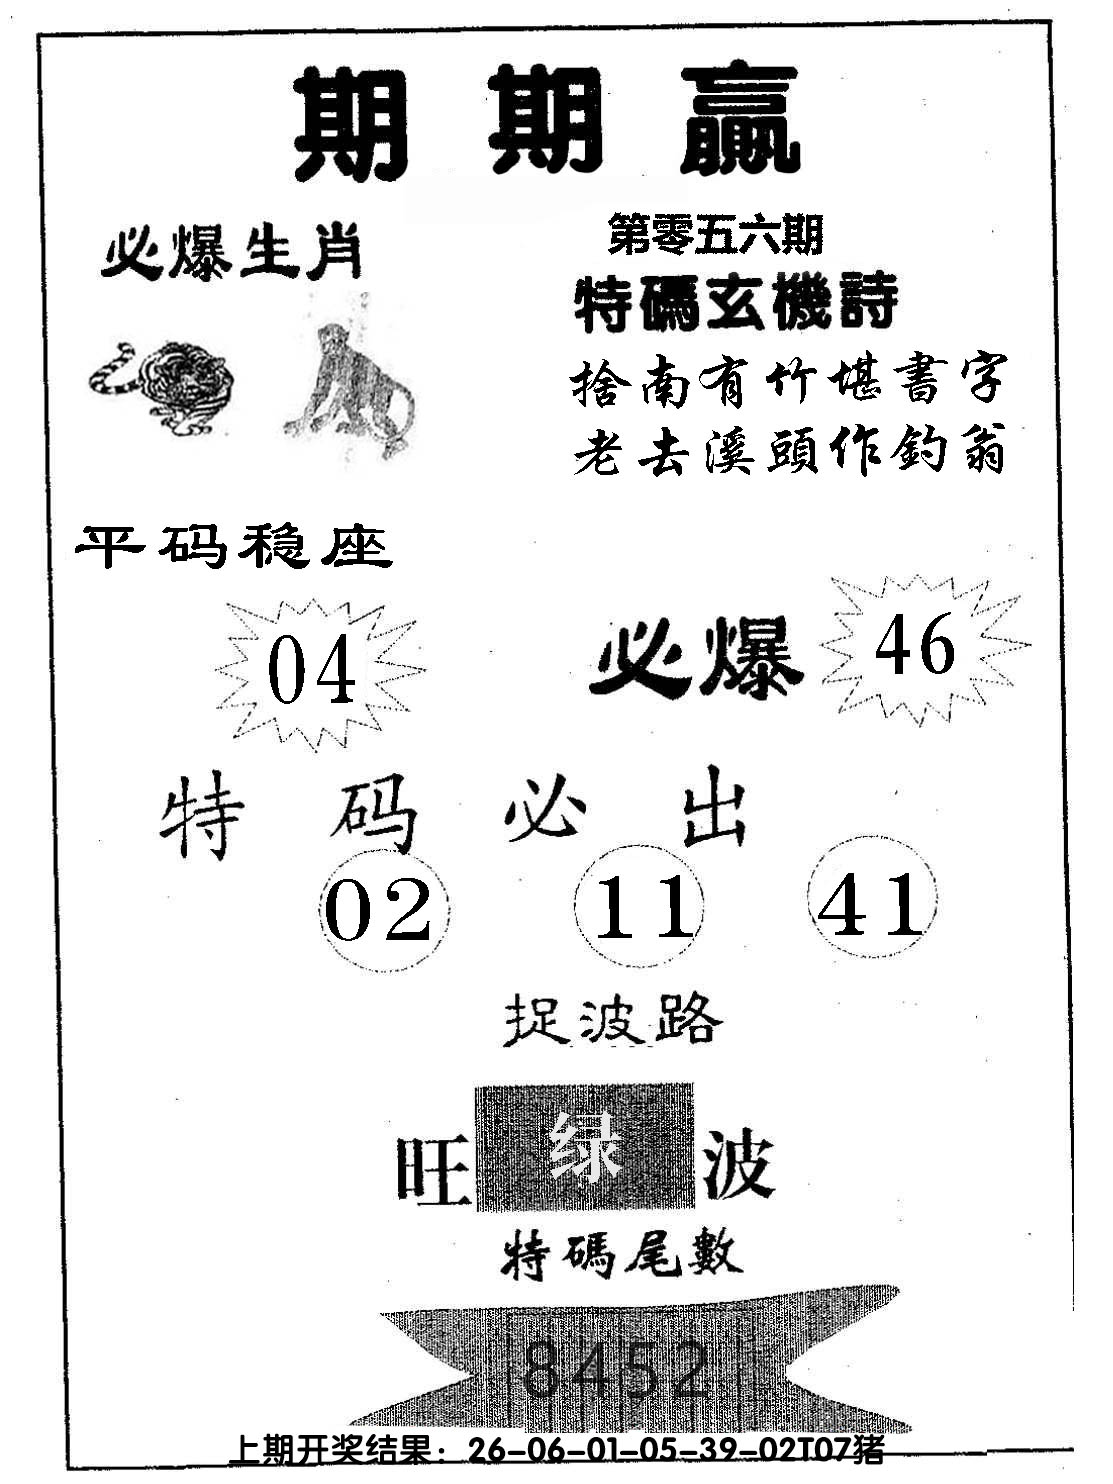 期期赢
必爆生肖
第零五六期
特碼玄機詩
捨南有竹堪書字
老去溪頭作釣翁
平码稳座
04
必爆
46
特码必出
02 11 41
捉波路
旺绿波
特碼尾數
8452
上期开奖结果：26-06-01-05-39-02T07猪